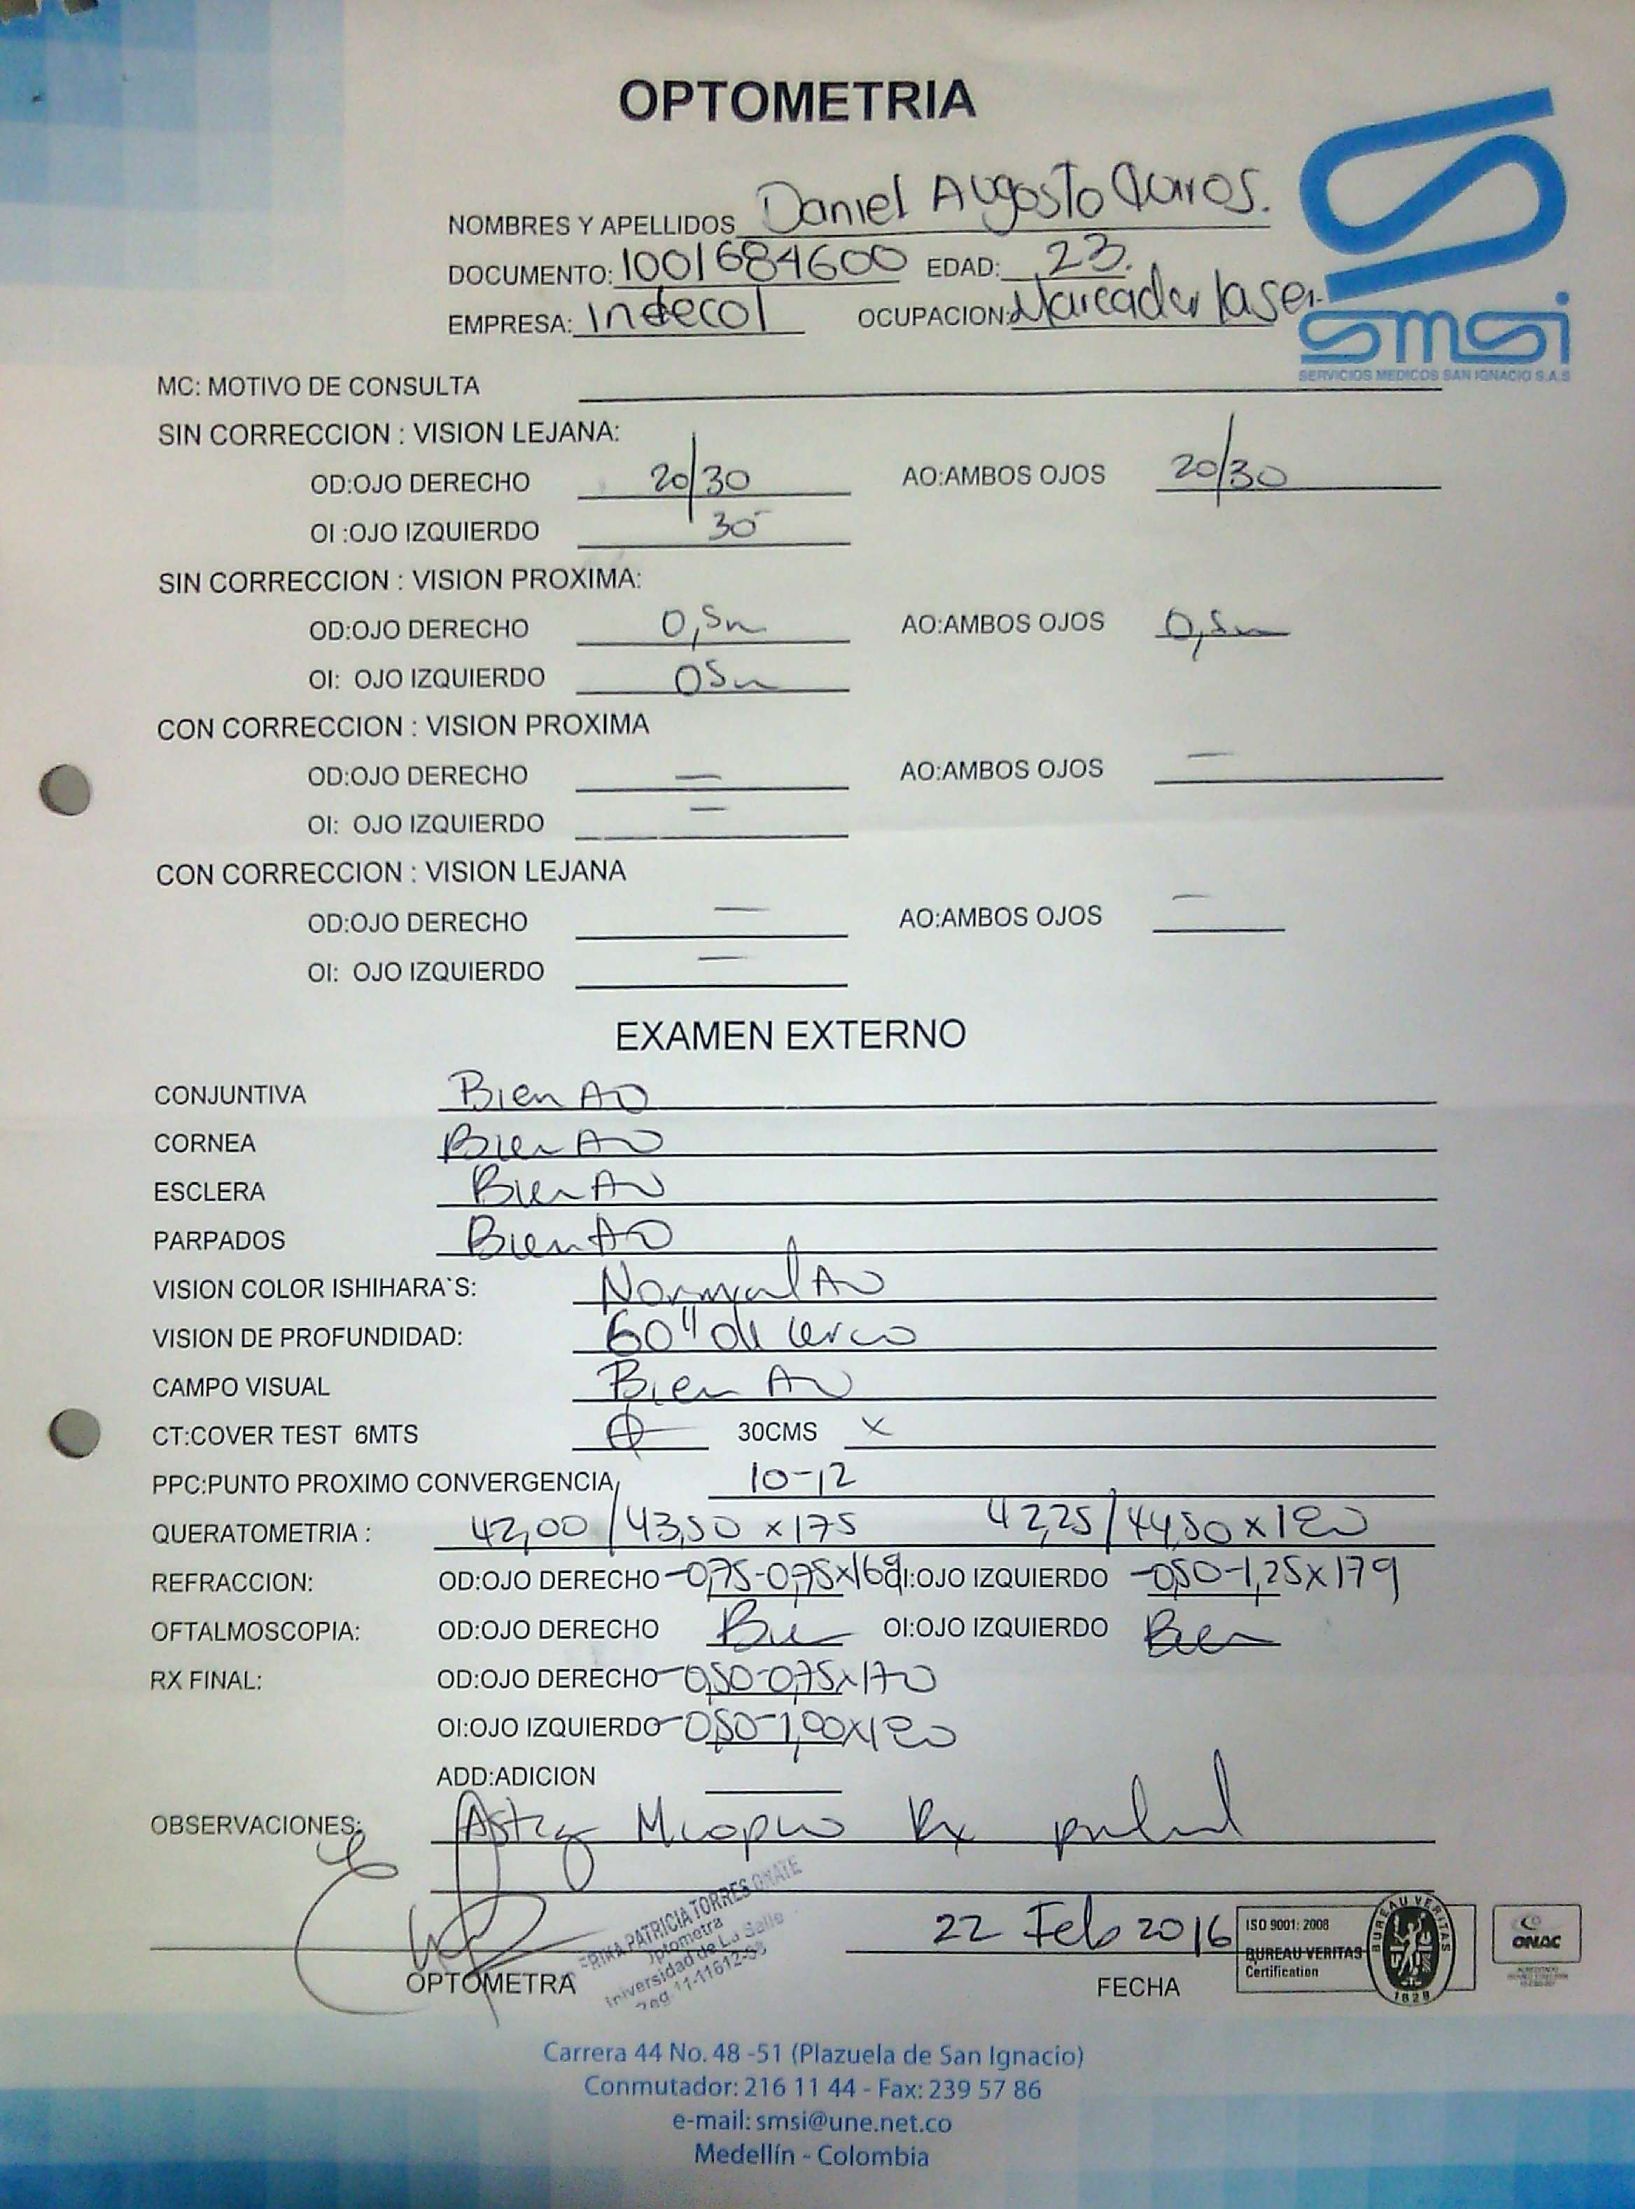 OPTOMETRIA
NOMBRES Y APELLIDOS Daniel Augosto
DOCUMENTO: 1001684600 EDAD: 23.
EMPRESA: Indecol OCUPACION: Marcador laser
smsi
SERVICIOS MEDICOS SAN IGNACIO S.A.S
MC: MOTIVO DE CONSULTA
SIN CORRECCION : VISION LEJANA:
OD:OJO DERECHO 20/30 AO:AMBOS OJOS 20/30
OI :OJO IZQUIERDO 30
SIN CORRECCION : VISION PROXIMA:
OD:OJO DERECHO 0,5m AO:AMBOS OJOS 0,5m
OI: OJO IZQUIERDO 05m
CON CORRECCION : VISION PROXIMA
OD:OJO DERECHO — AO:AMBOS OJOS —
OI: OJO IZQUIERDO —
CON CORRECCION : VISION LEJANA
OD:OJO DERECHO — AO:AMBOS OJOS —
OI: OJO IZQUIERDO —
EXAMEN EXTERNO
CONJUNTIVA Bien AO
CORNEA Bien AO
ESCLERA Bien AO
PARPADOS Bien AO
VISION COLOR ISHIHARA`S: Normal AO
VISION DE PROFUNDIDAD: 60" de
CAMPO VISUAL Bien AO
CT:COVER TEST 6MTS 30CMS X
PPC:PUNTO PROXIMO CONVERGENCIA 10-12
QUERATOMETRIA : 42,00/43,50 x175 42,25/44,50x180
REFRACCION: OD:OJO DERECHO -0,75-0,75x169 OI:OJO IZQUIERDO -0,50-1,25x179
OFTALMOSCOPIA: OD:OJO DERECHO Bien OI:OJO IZQUIERDO Bien
RX FINAL: OD:OJO DERECHO -0,50-0,75x170
OI:OJO IZQUIERDO -0,50-1,00x180
ADD:ADICION
OBSERVACIONES: Astig Miopico Rx
ERIKA PATRICIA TORRES OÑATE
Optometra
Universidad de La Salle
22 Feb 2016
OPTOMETRA
FECHA
ISO 9001: 2008
BUREAU VERITAS
Certification
BUREAU VERITAS
1828
ONAC
Carrera 44 No. 48 -51 (Plazuela de San Ignacio)
Conmutador: 216 11 44 - Fax: 239 57 86
e-mail: smsi@une.net.co
Medellín - Colombia